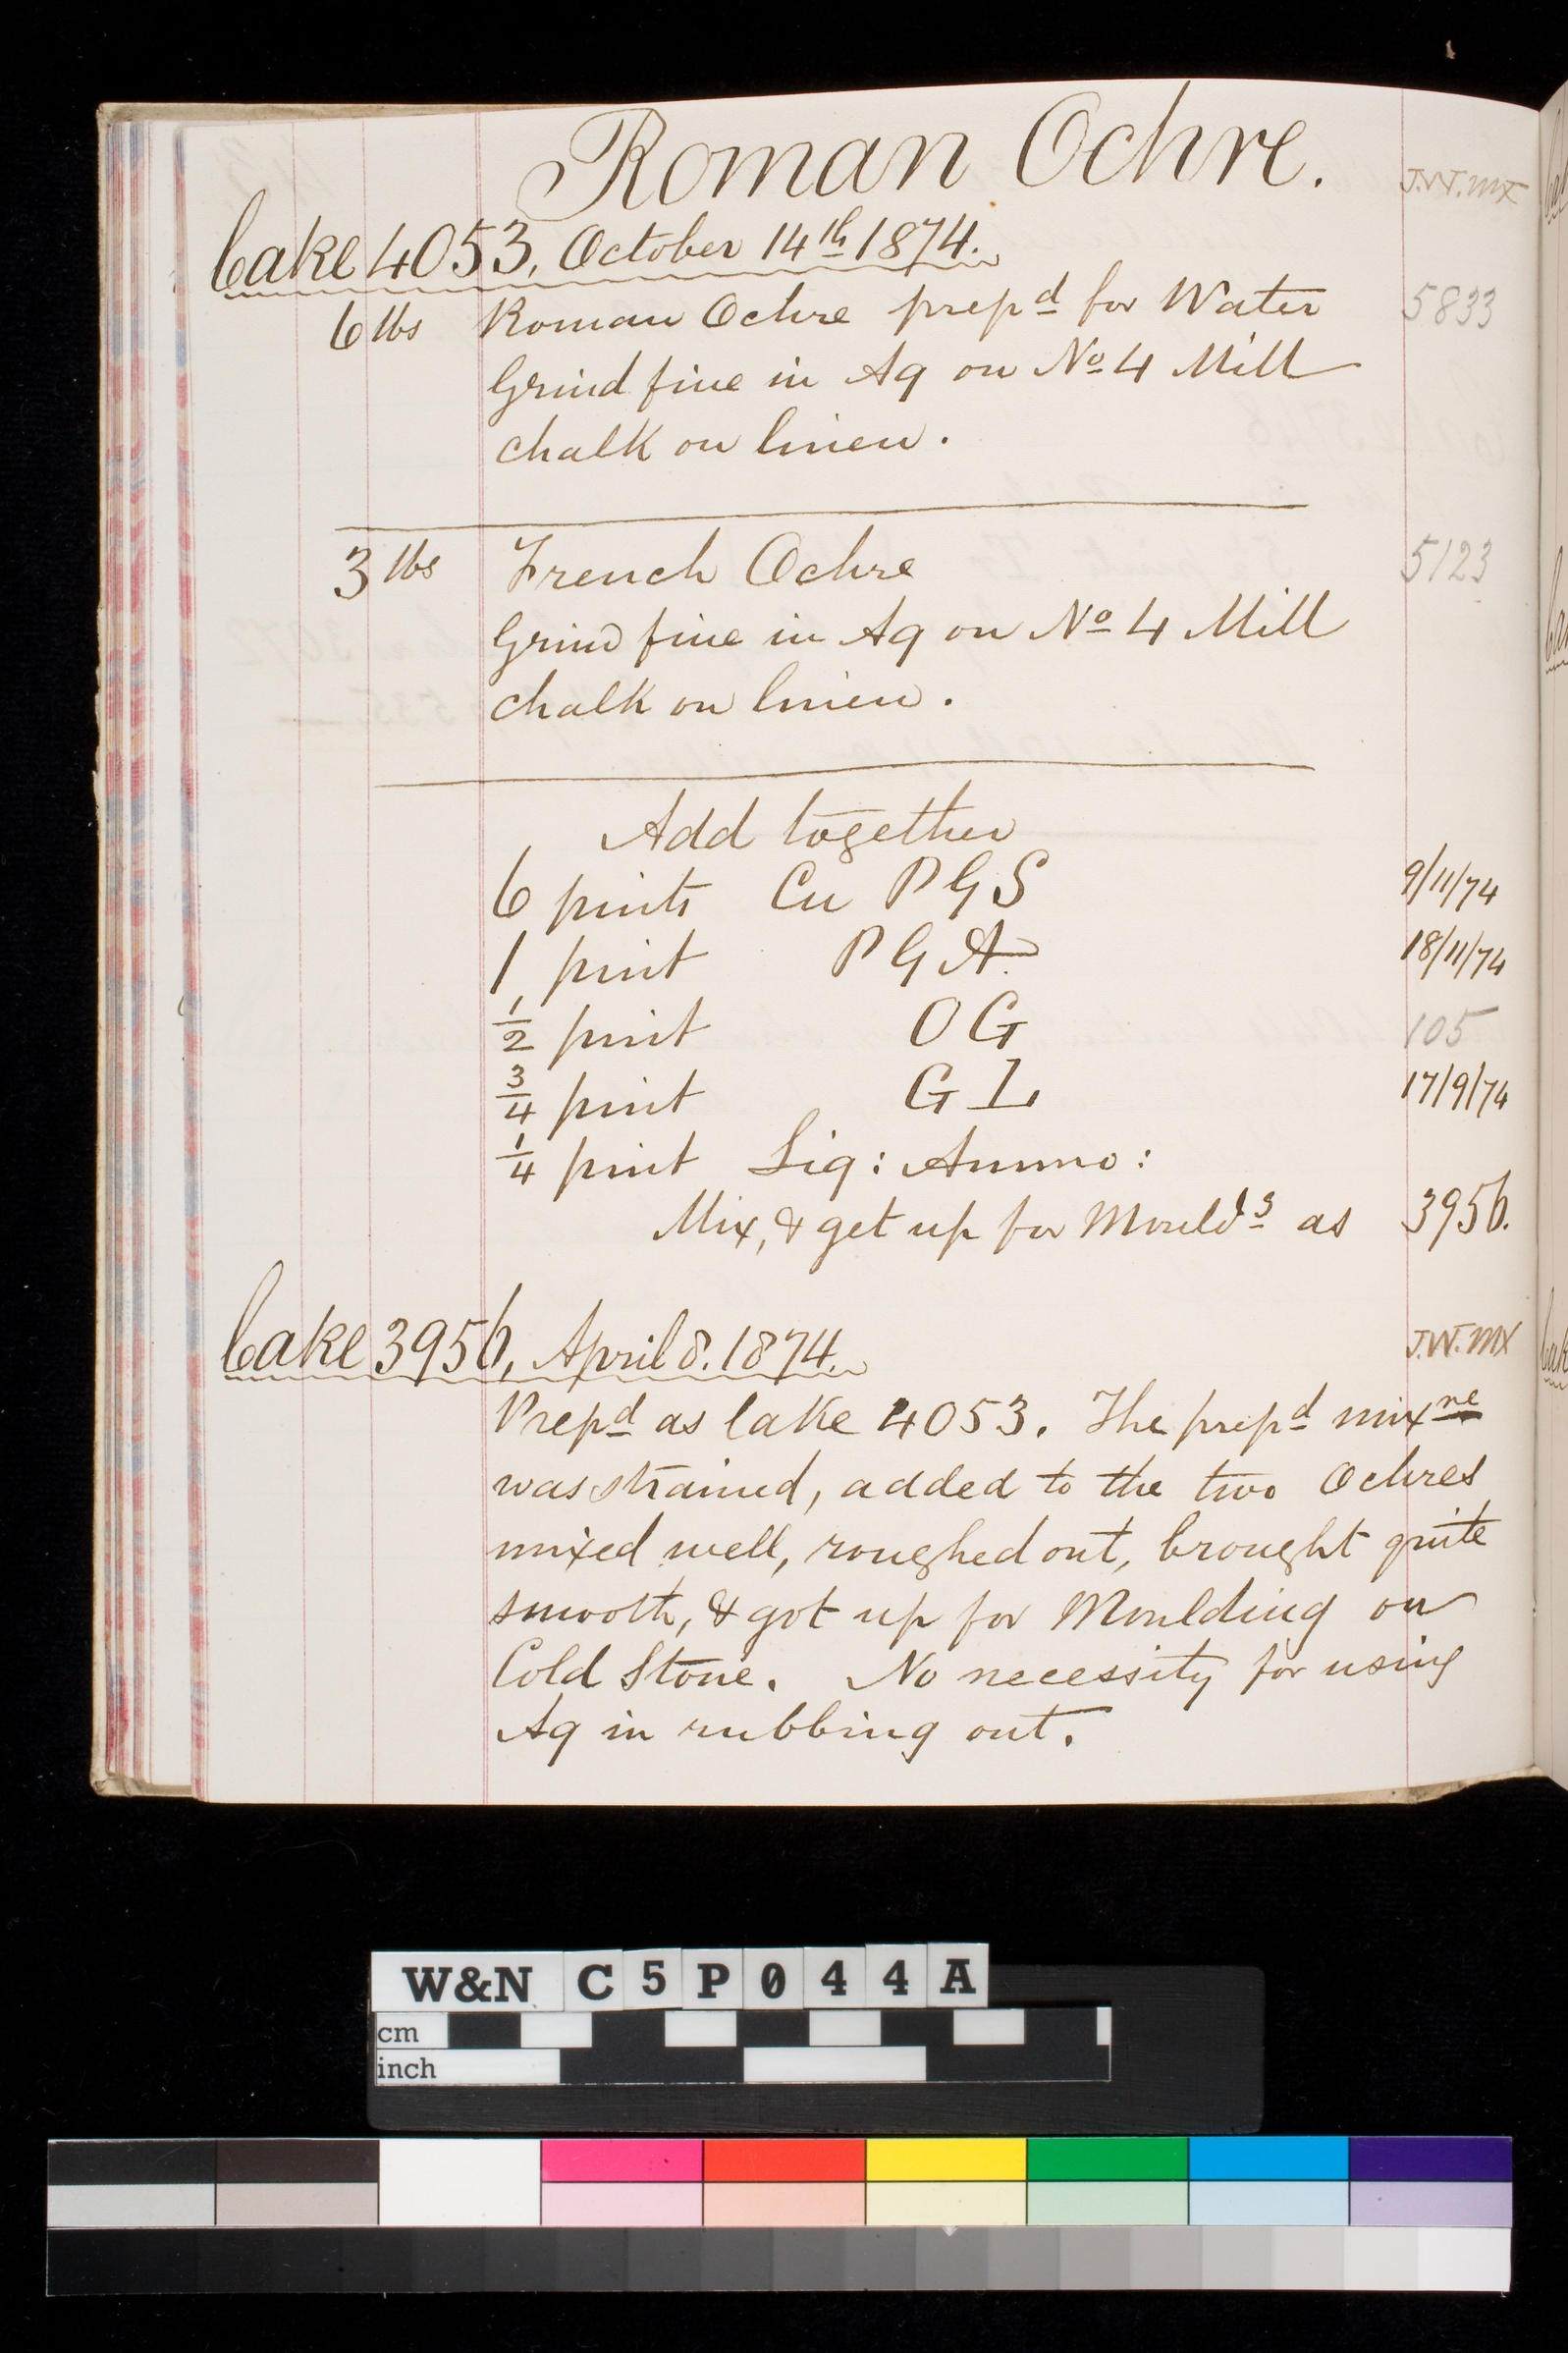 Roman Ochre.
J.W.mx
Cake 4053, October 14th 1874.
6 lbs Roman Ochre prepd for Water 5833
Grind fine in Aq on No 4 Mill
chalk on linen.
3 lbs French Ochre 5123
Grind fine in Aq on No 4 Mill
chalk on linen.
Add together
6 pints Cu P G S 9/11/74
1 pint P G A. 18/11/74
1/2 pint O G 105
3/4 pint G L 17/9/74
1/4 pint Liq: Ammo:
Mix, & get up for Mouldg as 3956.
Cake 3956, April 8. 1874. J.W.MX
Prepd as Cake 4053. The prepd mixre
was strained, added to the two Ochres
mixed well, roughed out, brought quite
smooth, & got up for Moulding on
Cold Stone. No necessity for using
Aq in rubbing out.
W&N C5P044A
cm
inch